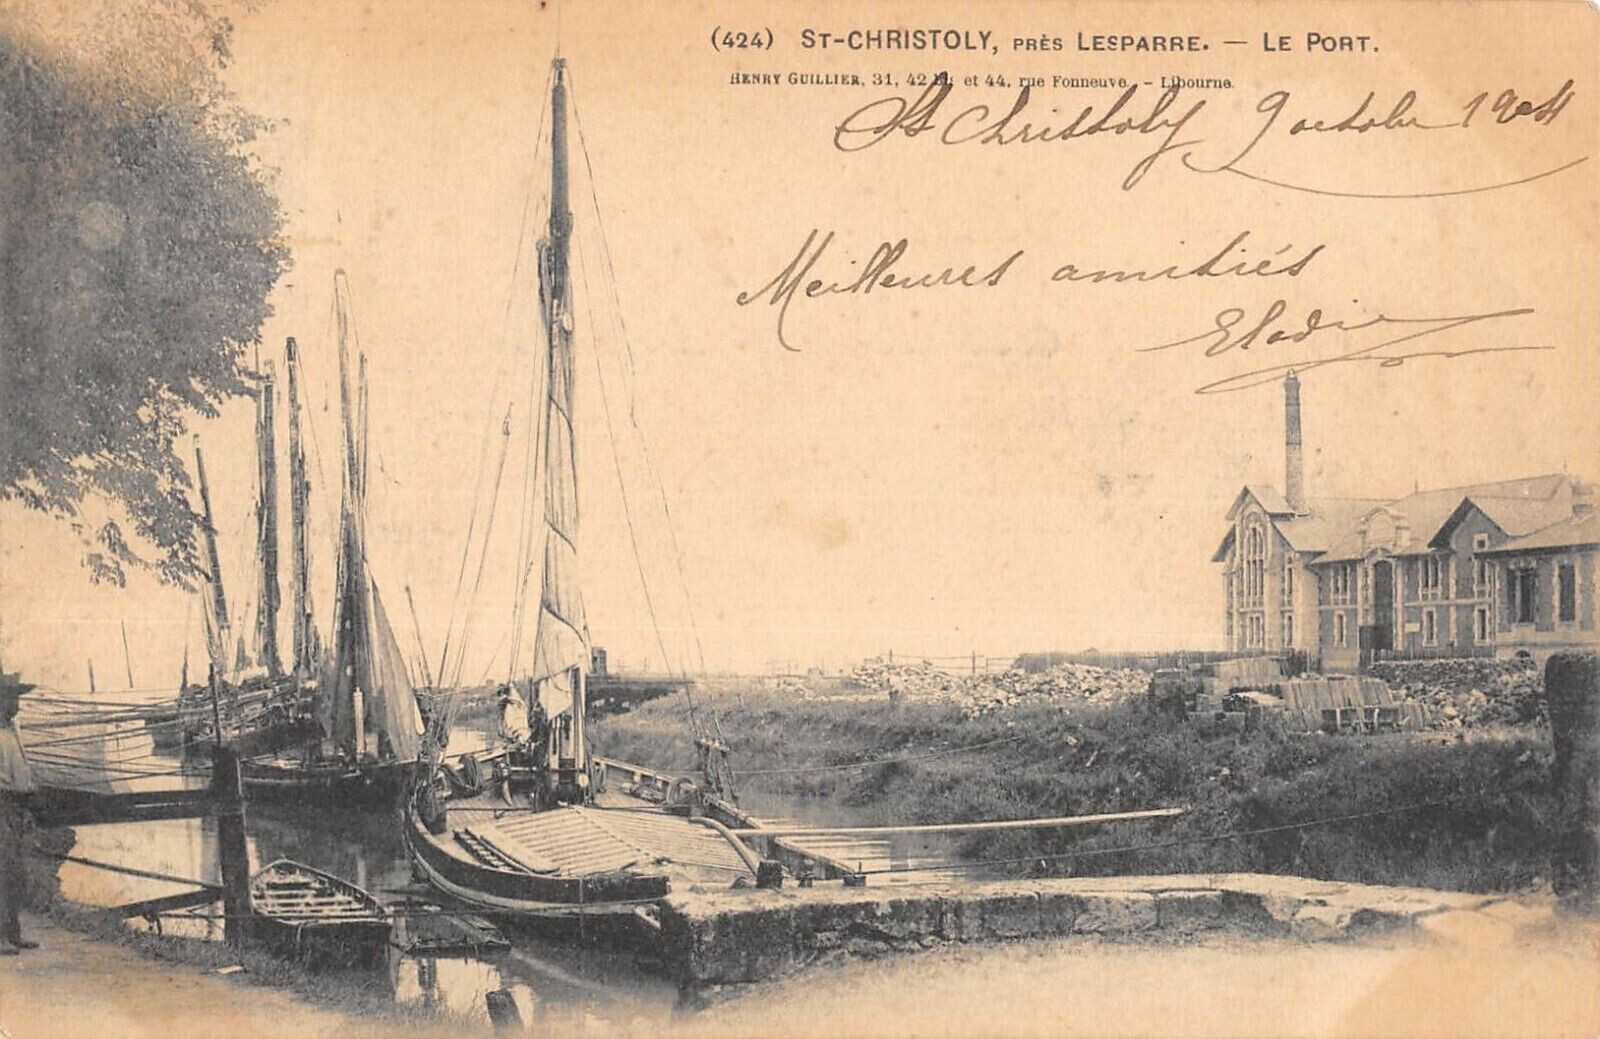 (424) ST-CHRISTOLY, PRÈS LESPARRE. — LE PORT.
HENRY GUILLIER, 31, 42 bis et 44, rue Fonneuve. - Libourne.
St Christoly 9 octobre 1904
Meilleures amitiés
Elodie